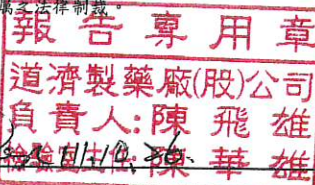 之法律制裁。
報告專用章
道濟製藥廠(股)公司
負責人:陳飛雄
陳華雄